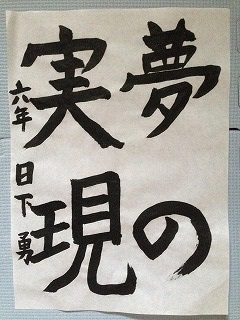 夢の
実現
六年 日下 勇